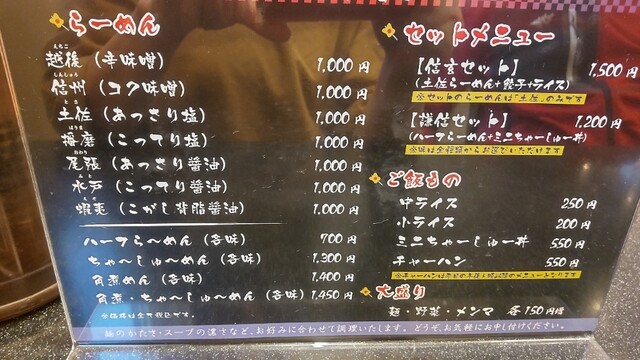 らーめん
えちご
越後（辛味噌） 1,000円
しんしゅう
信州（コク味噌） 1,000円
とさ
土佐（あっさり塩） 1,000円
はりま
播磨（こってり塩） 1,000円
おわり
尾張（あっさり醤油） 1,000円
みと
水戸（こってり醤油） 1,000円
えぞ
蝦夷（こがし背脂醤油） 1,000円
ハーフらーめん（各味） 700円
ちゃーしゅーめん（各味） 1,300円
角煮めん（各味） 1,400円
角煮・ちゃーしゅーめん（各味） 1,450円
※価格は全て税込です。
セットメニュー
【信玄セット】 1,500円
（土佐らーめん+餃子+ライス）
※セットのらーめんは「土佐」のみです
【謙信セット】 1,200円
（ハーフらーめん+ミニちゃーしゅー丼）
※味は全種類からお選びいただけます
ご飯もの
中ライス 250円
小ライス 200円
ミニちゃーしゅー丼 550円
チャーハン 550円
大盛り
麺・野菜・メンマ 各150円増
麺のかたさ・スープの濃さなど、お好みに合わせて調理いたします。どうぞ、お気軽にお申し付けください。